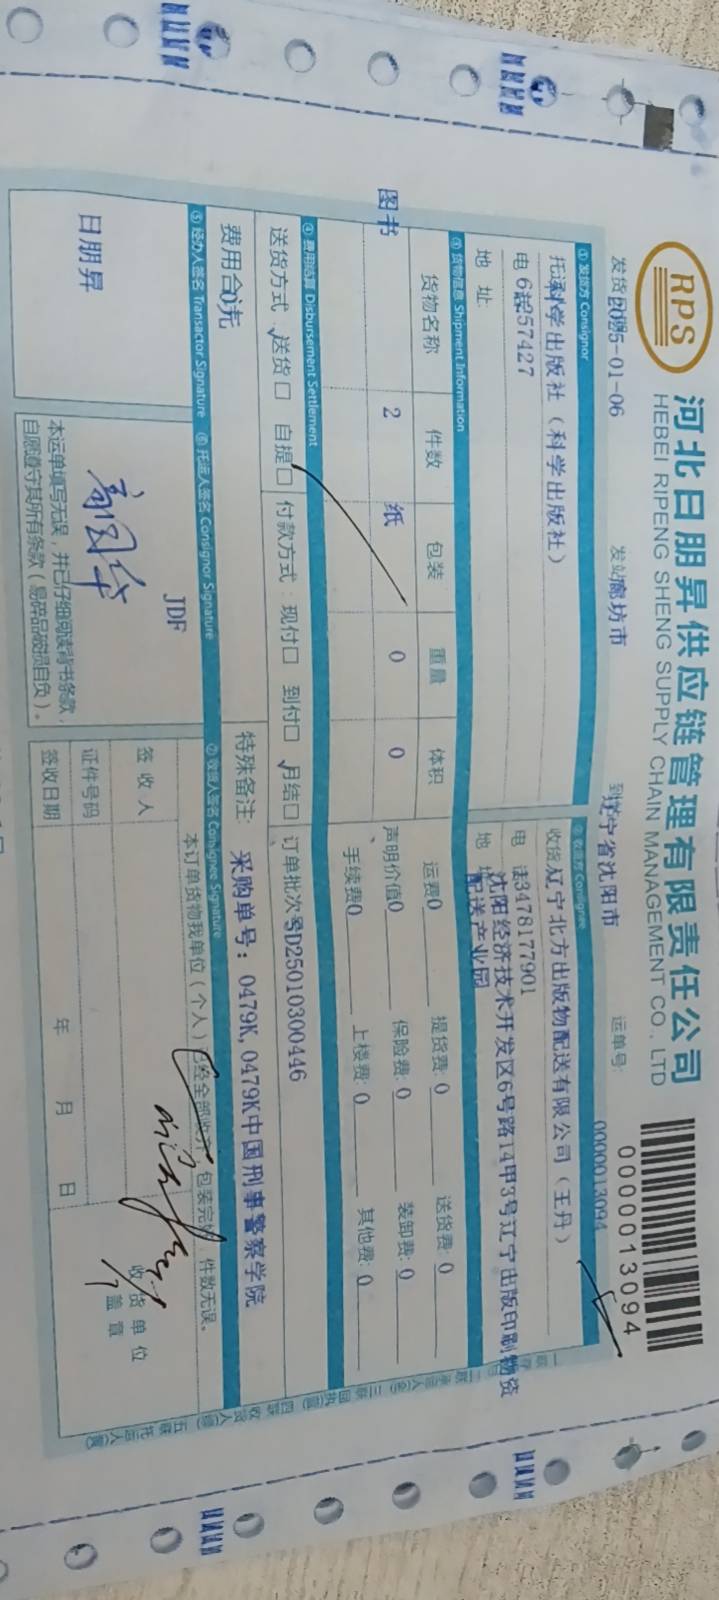 RPS
河北日朋昇供应链管理有限责任公司
HEBEI RIPENG SHENG SUPPLY CHAIN MANAGEMENT CO., LTD
0000013094
发货 2025-01-06 发站 廊坊市 到 辽宁省沈阳市 运单号: 0000013094
① 发货方 Consignor
② 收货方 Consignee
托 科学出版社（科学出版社）
收货 辽宁北方出版物配送有限公司（王丹）
电 57427
电 话 3478177901
地 址:
地 址 沈阳经济技术开发区6号路14甲3号辽宁出版印刷物资
配送产业园
③ 货物信息 Shipment Information
货物名称 件数 包装 重量 体积
图书 2 纸 0 0
运费0 提货费: 0 送货费: 0
声明价值0 保险费: 0 装卸费: 0
手续费0 上楼费: 0 其他费: 0
④ 费用结算 Disbursement Settlement
送货方式: 送货□ 自提□ 付款方式: 现付□ 到付□ 月结□ 订单批次号SD25010300446
费用合 0元
特殊备注: 采购单号: 0479K, 0479K中国刑事警察学院
⑤ 经办人签名 Transactor Signature ⑥ 托运人签名 Consignor Signature ⑦ 收货人签名 Consignee Signature
日朋昇
JDF
本运单填写无误，并已仔细阅读背书条款，
自愿遵守其所有条款（易碎品破损自负）。
本订单货物我单位（个人）已经全部收齐，包装完好，件数无误。
签 收 人
证件号码
签收日期 年 月 日
收 货 单 位
盖 章